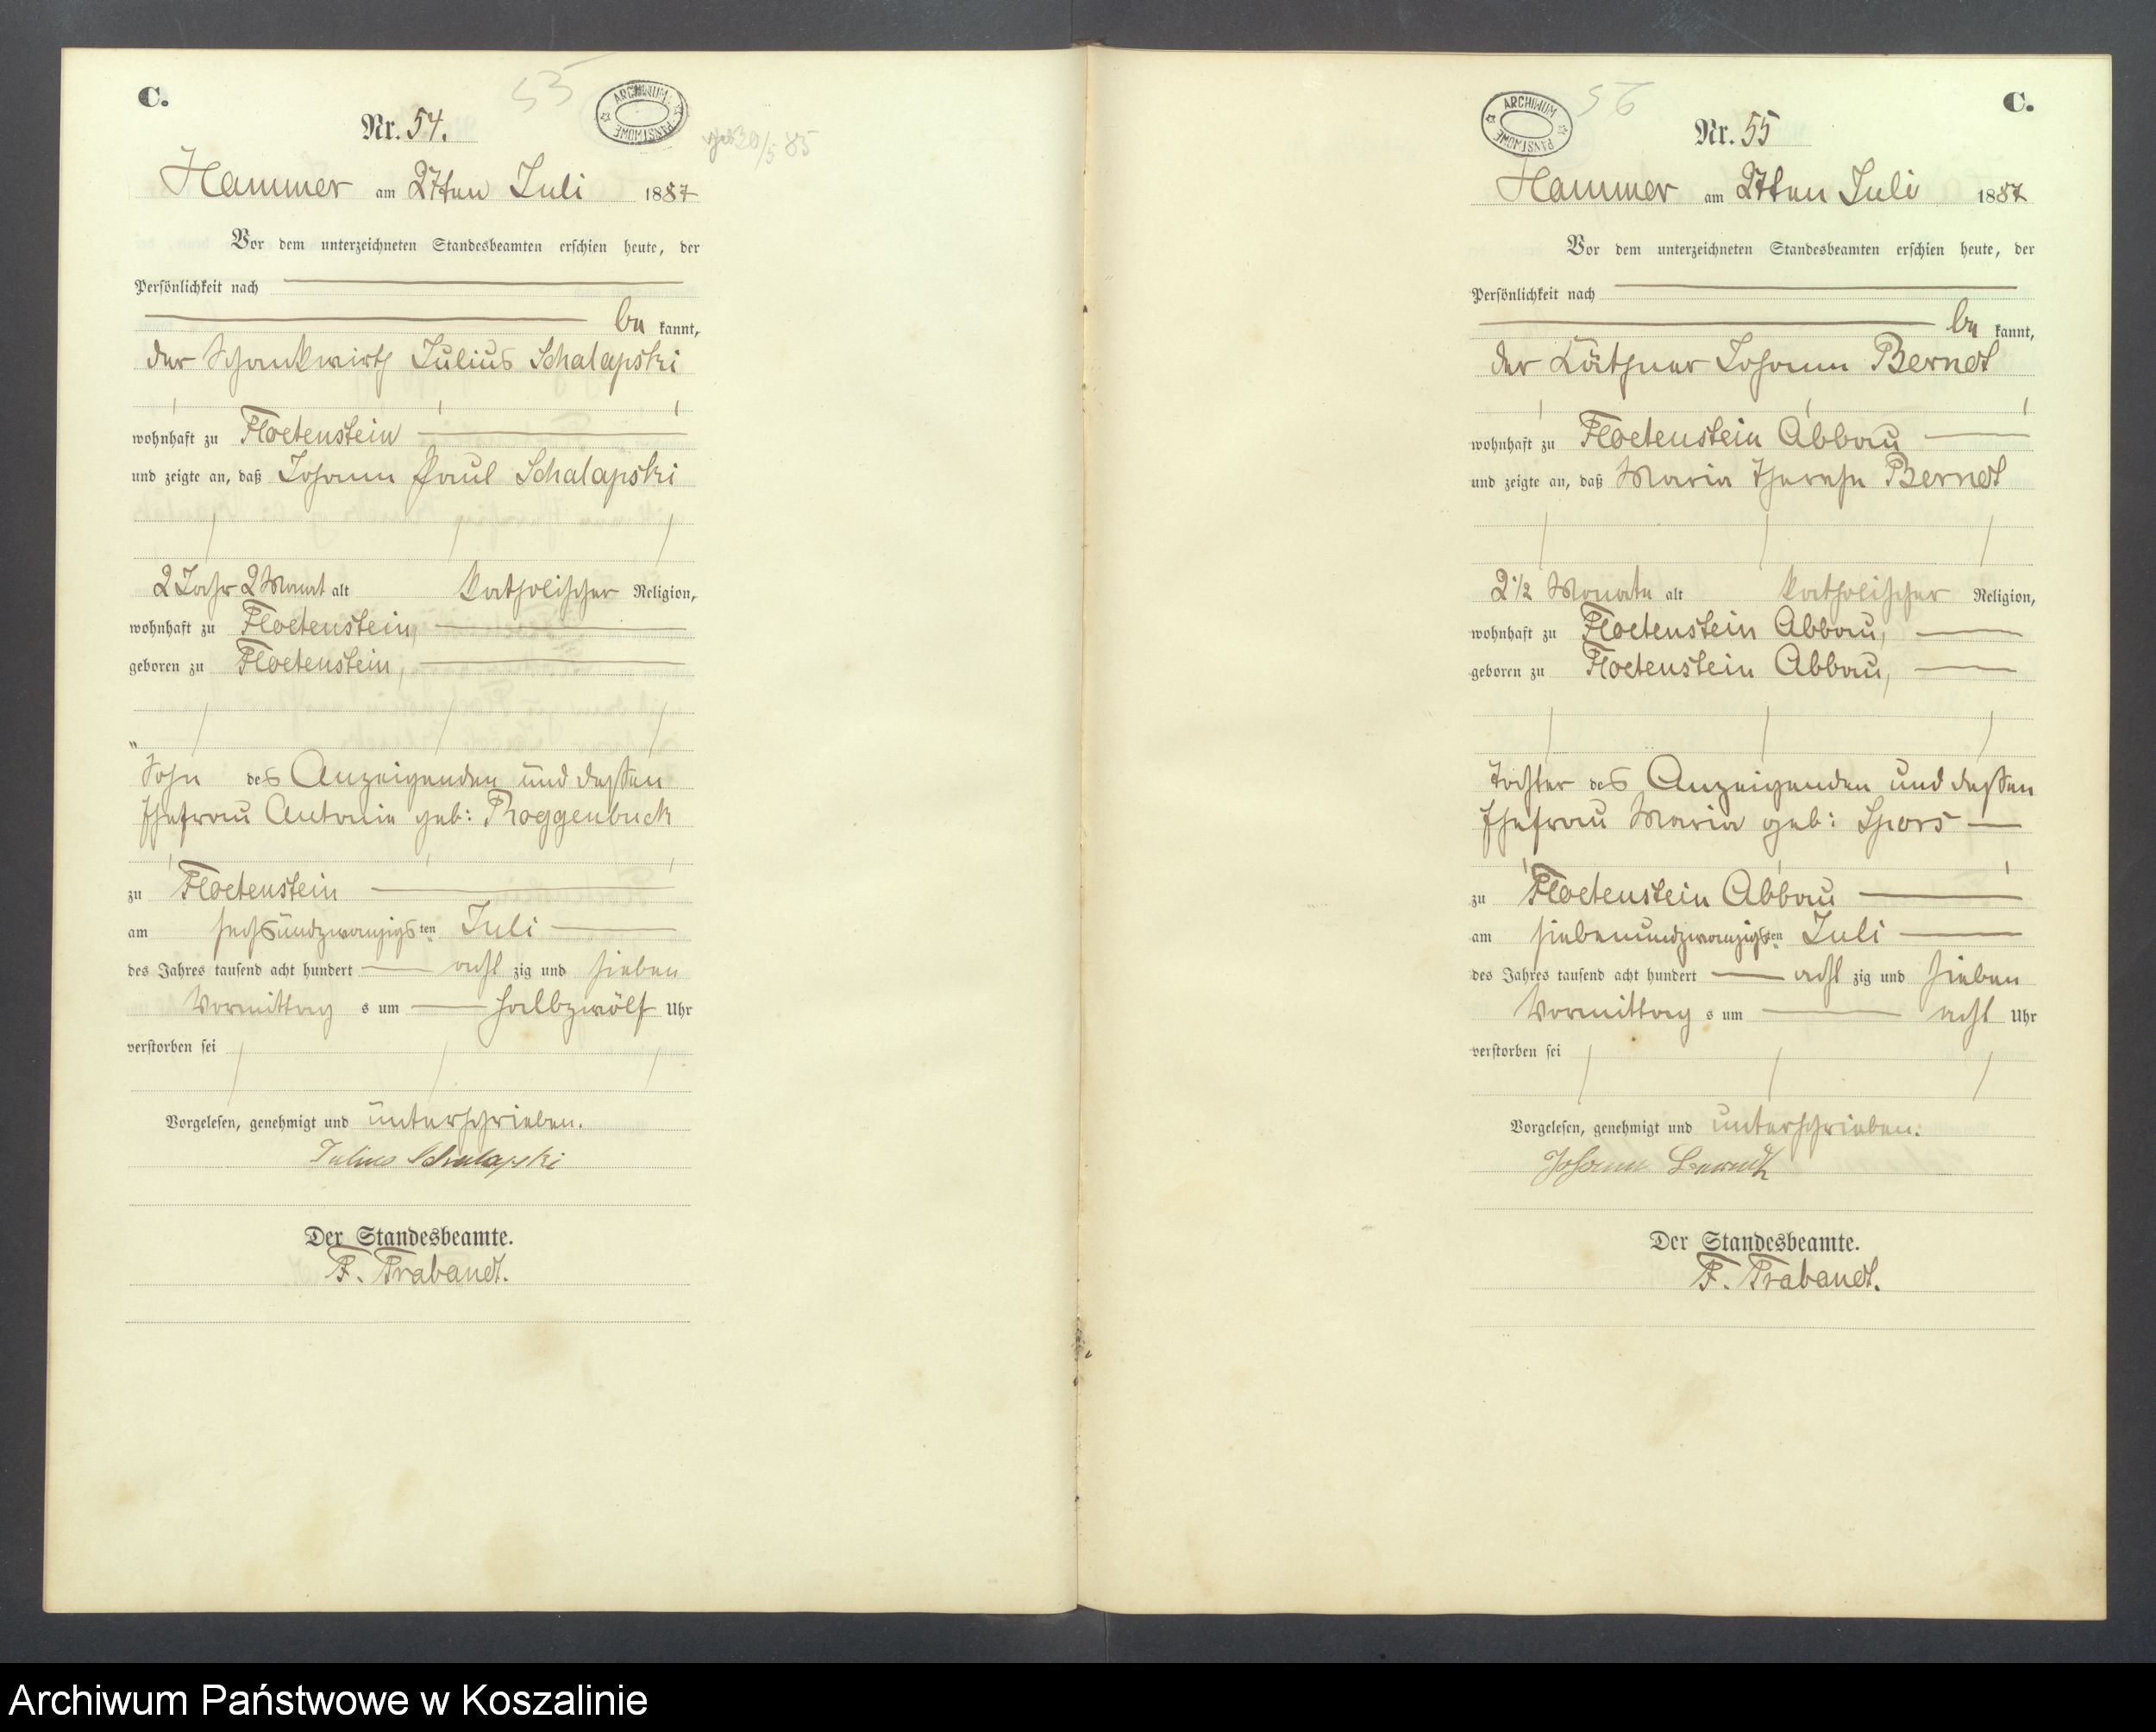 C.
55
ARCHIWUM PAŃSTWOWE
Nr. 54.
geb 30/5 85
Hammer am 27ten Juli 1887
Vor dem unterzeichneten Standesbeamten erschien heute, der
Persönlichkeit nach
be kannt,
der Schankwirth Julius Schalapski
wohnhaft zu Floetenstein
und zeigte an, daß Johann Paul Schalapski
2 Jahr 2 Monat alt katholischer Religion,
wohnhaft zu Floetenstein,
geboren zu Floetenstein,
Sohn des Anzeigenden und dessen
Ehefrau Antonie geb: Roggenbuck
zu Floetenstein
am sechsundzwanzigsten Juli
des Jahres tausend acht hundert acht zig und sieben
Vormittag s um halbzwölf Uhr
verstorben sei
Vorgelesen, genehmigt und unterschrieben.
Julius Schalapski
Der Standesbeamte.
F. Trabandt.
C.
56
ARCHIWUM PAŃSTWOWE
Nr. 55
Hammer am 27ten Juli 1887
Vor dem unterzeichneten Standesbeamten erschien heute, der
Persönlichkeit nach
be kannt,
der Käthner Johann Berndt
wohnhaft zu Floetenstein Abbau
und zeigte an, daß Maria Therese Berndt
2 1/2 Monate alt katholischer Religion,
wohnhaft zu Floetenstein Abbau,
geboren zu Floetenstein Abbau,
Tochter des Anzeigenden und dessen
Ehefrau Maria geb: Spors
zu Floetenstein Abbau
am siebenundzwanzigsten Juli
des Jahres tausend acht hundert acht zig und sieben
Vormittag s um acht Uhr
verstorben sei
Vorgelesen, genehmigt und unterschrieben.
Johann Berndt
Der Standesbeamte.
F. Trabandt.
Archiwum Państwowe w Koszalinie